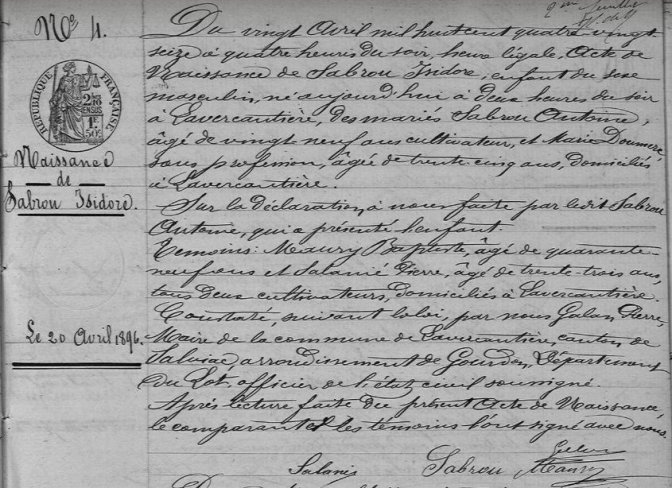 N° 4.
RÉPUBLIQUE FRANÇAISE
Naissance
de
Sabrou Isidore.
Le 20 Avril 1896.
Du vingt Avril mil huit cent quatre-vingt-
seize à quatre heures du soir, heure légale, Acte de
Naissance de Sabrou Isidore, enfant du sexe
masculin, né aujourd'hui à deux heures du soir
à Lavercantière, des mariés Sabrou Antoine,
âgé de vingt neuf ans cultivateur, et Marie Doumerc
sans profession, âgée de trente cinq ans, domiciliés
à Lavercantière.
Sur la déclaration à nous faite par ledit Sabrou
Antoine, qui a présenté l'enfant.
Témoins: Maury Baptiste, âgé de quarante-
neuf ans et Salanié Pierre, âgé de trente-trois ans,
tous deux cultivateurs, domiciliés à Lavercantière.
Constaté, suivant la loi, par nous Galou Pierre,
Maire de la commune de Lavercantière, canton de
Salviac, arrondissement de Gourdon, Département
du Lot, officier de l'état civil soussigné.
Après lecture faite du présent Acte de Naissance
le comparant et les témoins l'ont signé avec nous.
Salanié Sabrou Maury